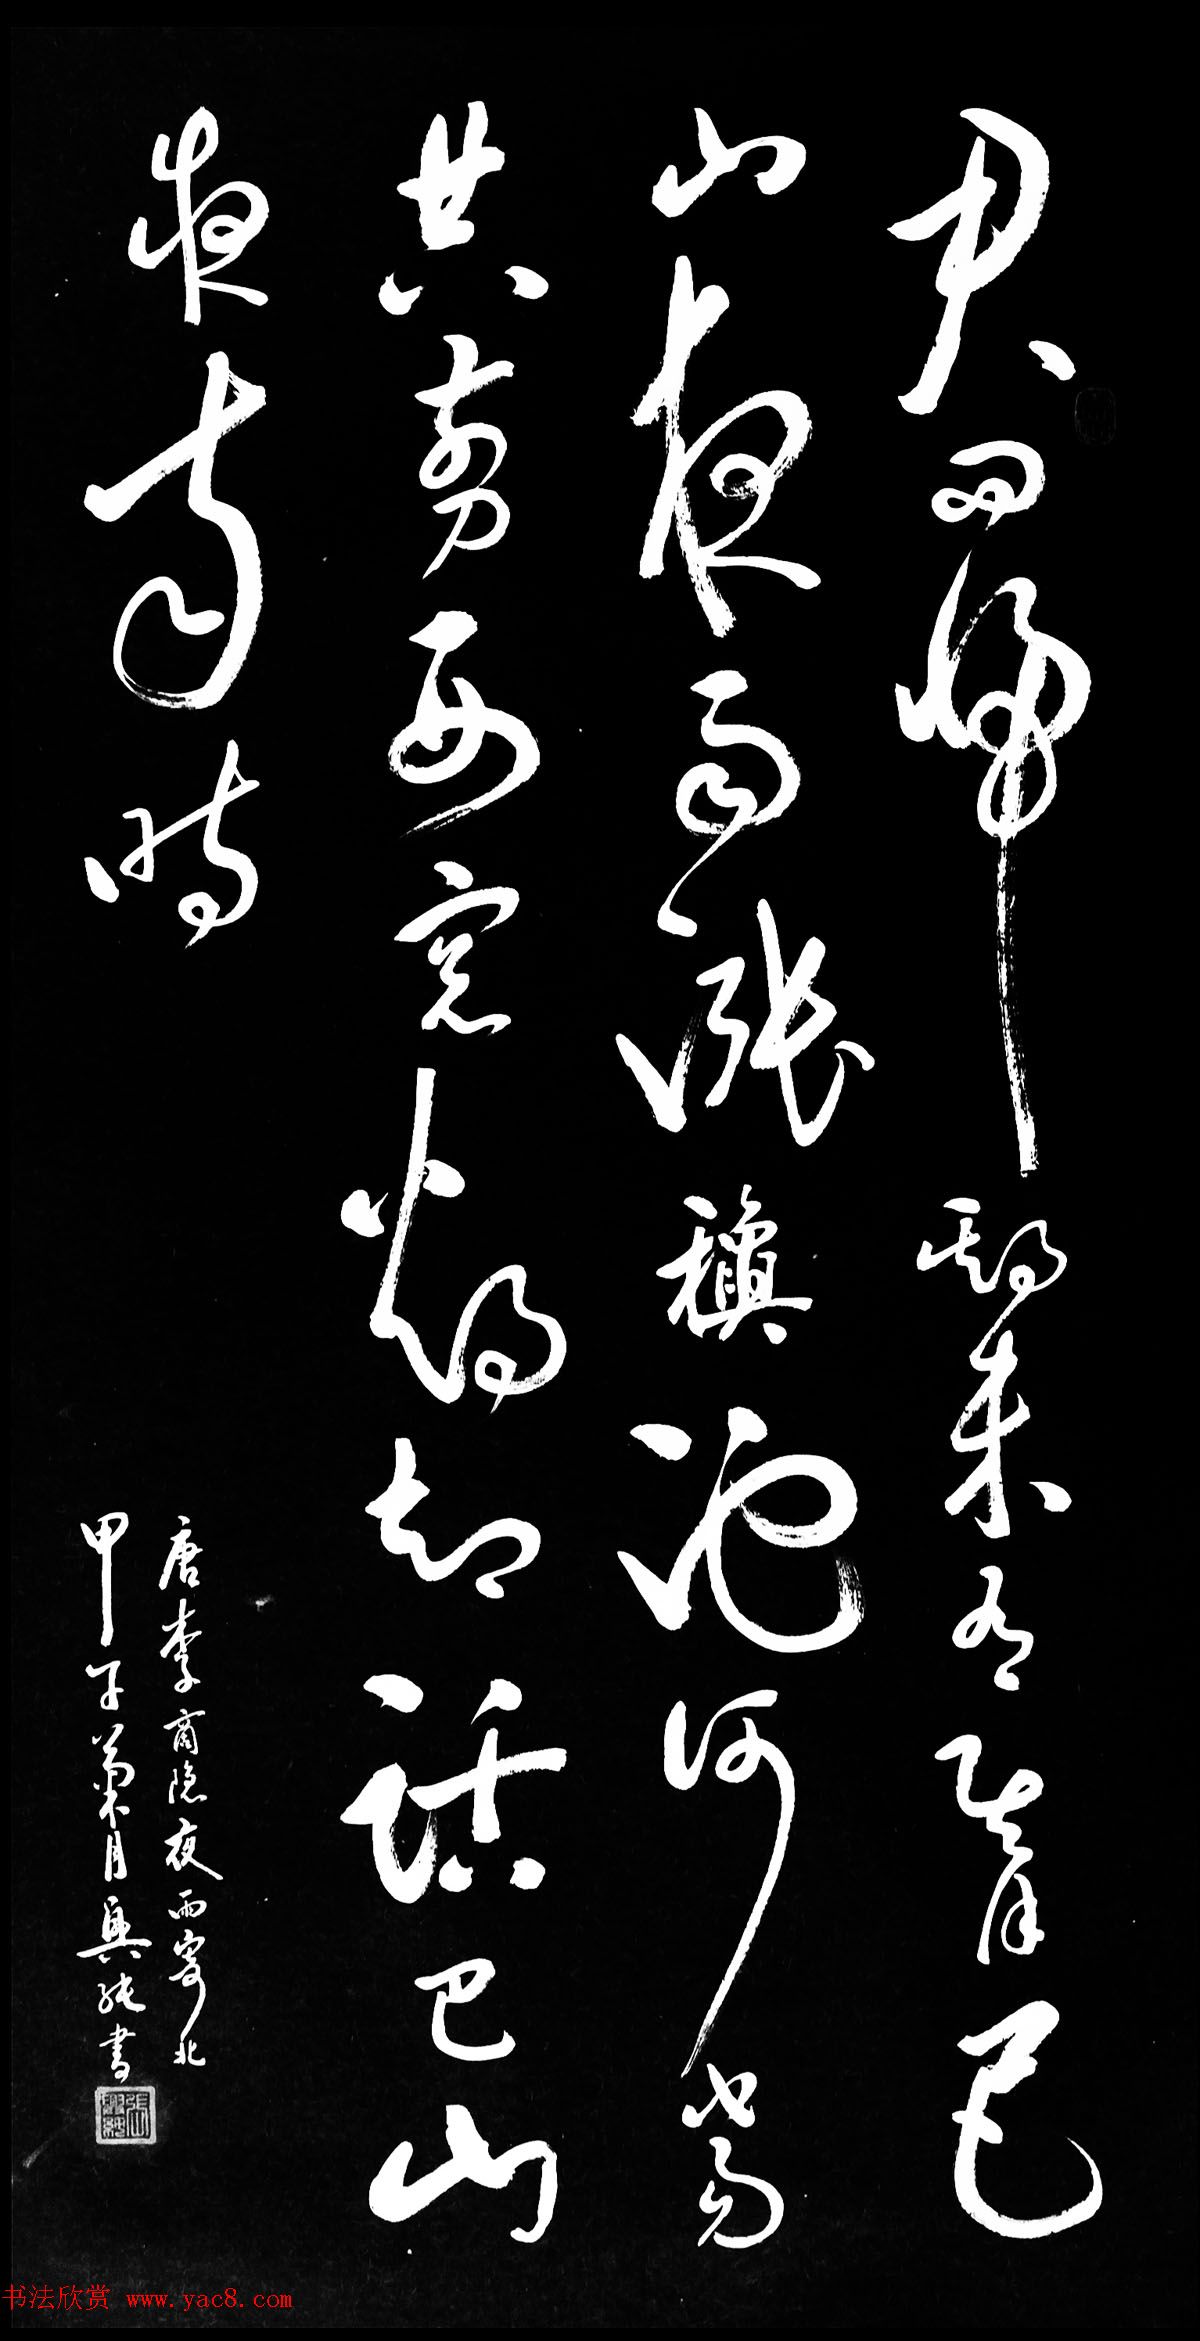 君問歸期未有期巴
山夜雨漲穐池何當
共剪西窗燭却話巴山
夜雨時
唐李商隐夜雨寄北
甲子菊月興書
书法欣赏 www.yac8.com